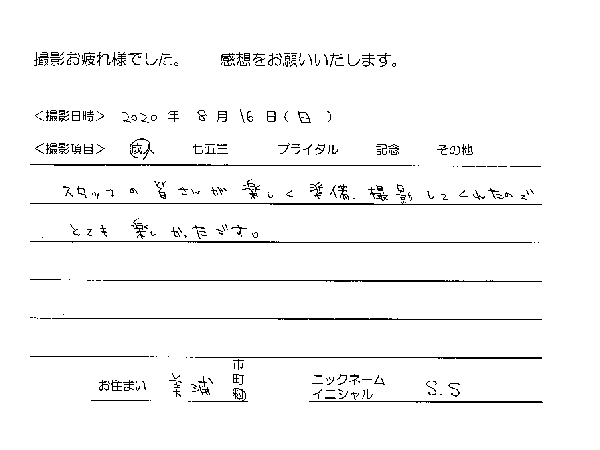 撮影お疲れ様でした。　感想をお願いいたします。
<撮影日時> 2020 年 8 月 16 日 ( 日 )
<撮影項目> 成人 七五三 ブライダル 記念 その他
スタッフの皆さんが楽しく準備、撮影してくれたので
とても楽しかったです。
お住まい 美浦 市町村 ニックネーム イニシャル S.S